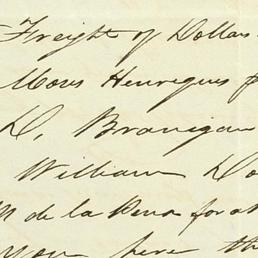 Freight of Dollars
Mons Henriques f
D. Branigan
William Do
M de la Pena for a
you here th